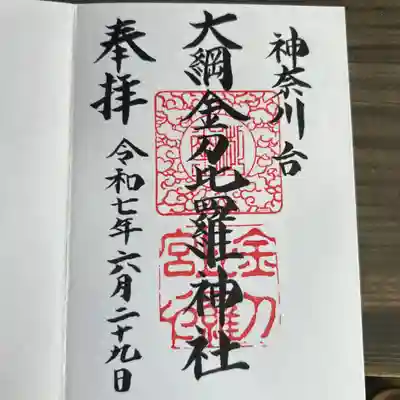 神奈川台
大綱金刀比羅神社
奉拝
令和七年六月二十九日